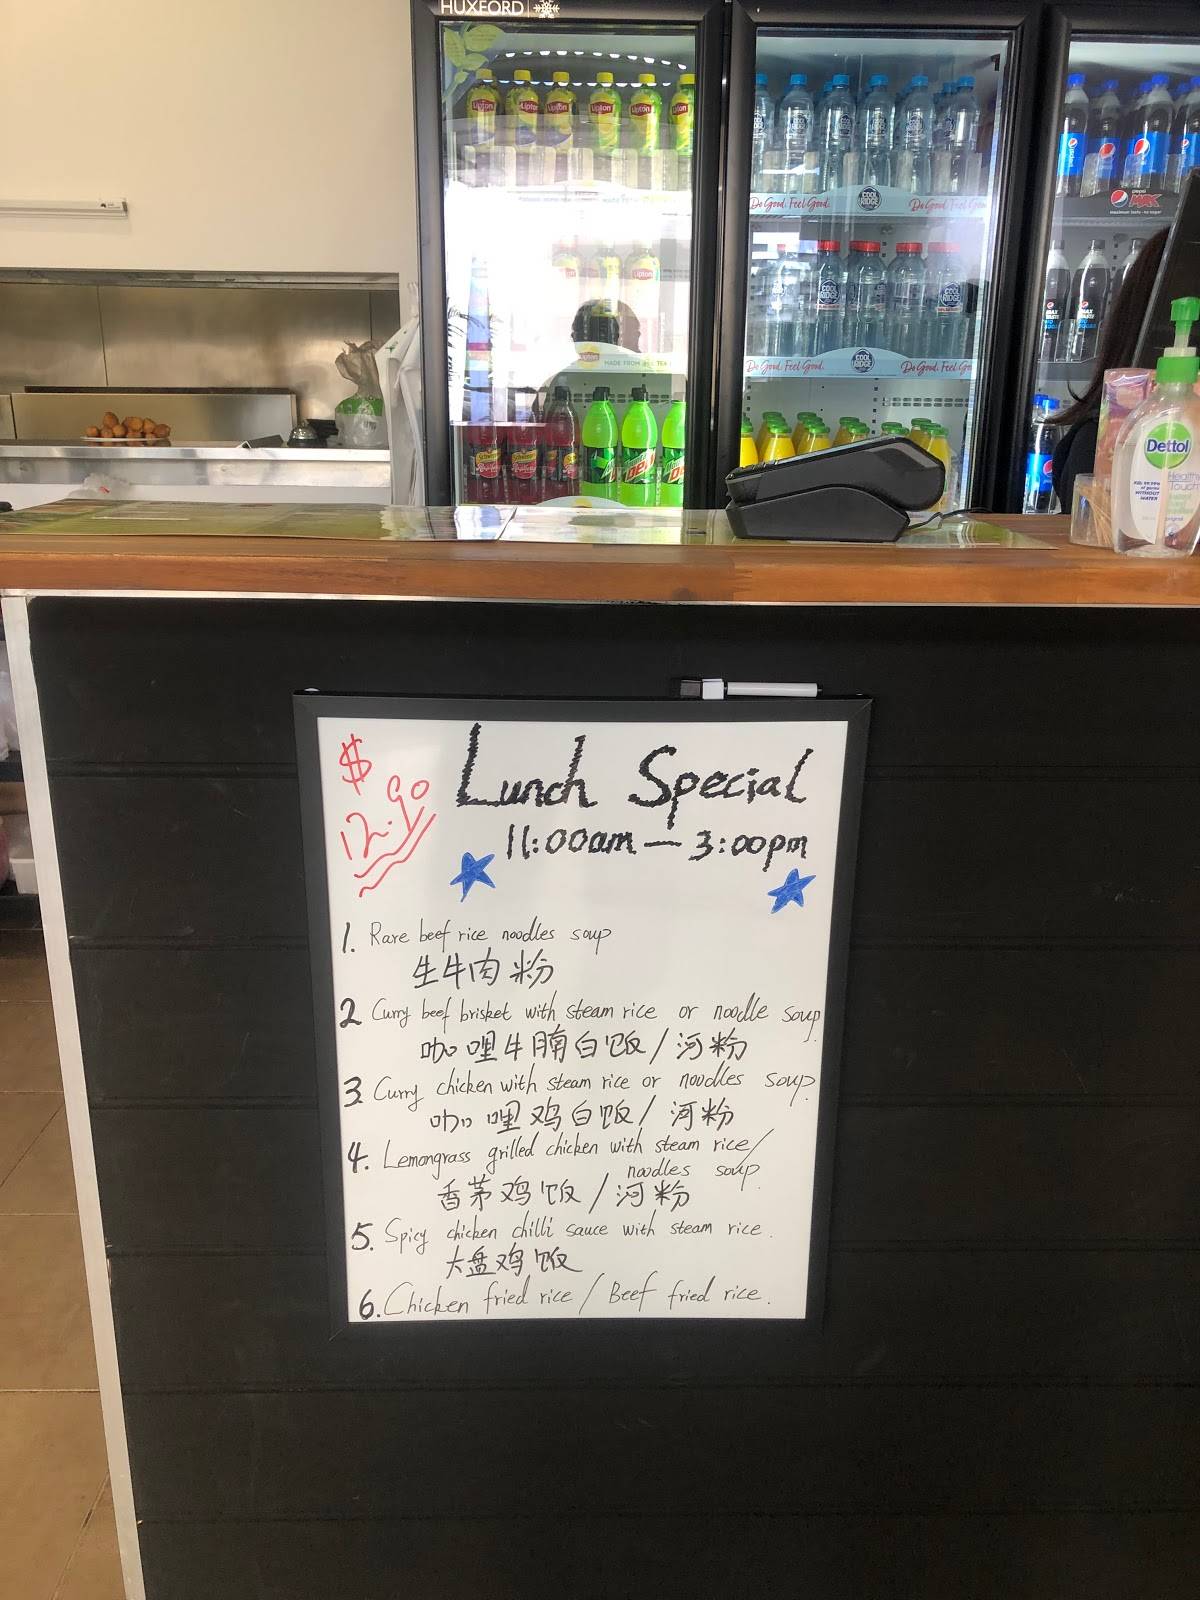 HUXFORD
Lipton Lipton Lipton Lipton Lipton
Do Good. Feel Good. COOL RIDGE Do Good. Feel Good.
pepsi
pepsi MAX
maximum taste · no sugar
Lipton Lipton
COOL RIDGE
MAX TASTE NO SUGAR
MADE FROM REAL TEA
Do Good. Feel Good. COOL RIDGE Do Good. Feel Good.
Dettol
Healthy Touch
KILLS 99.9% of germs WITHOUT WATER
$ 12.90
Lunch Special
11:00am — 3:00pm
1. Rare beef rice noodles soup
生牛肉粉
2 Curry beef brisket with steam rice or noodle soup
咖哩牛腩白饭/河粉
3. Curry chicken with steam rice or noodles soup
咖哩鸡白饭/河粉
4. Lemongrass grilled chicken with steam rice/
noodles soup
香茅鸡饭/河粉
5. Spicy chicken chilli sauce with steam rice.
大盘鸡饭
6. Chicken fried rice / Beef fried rice.